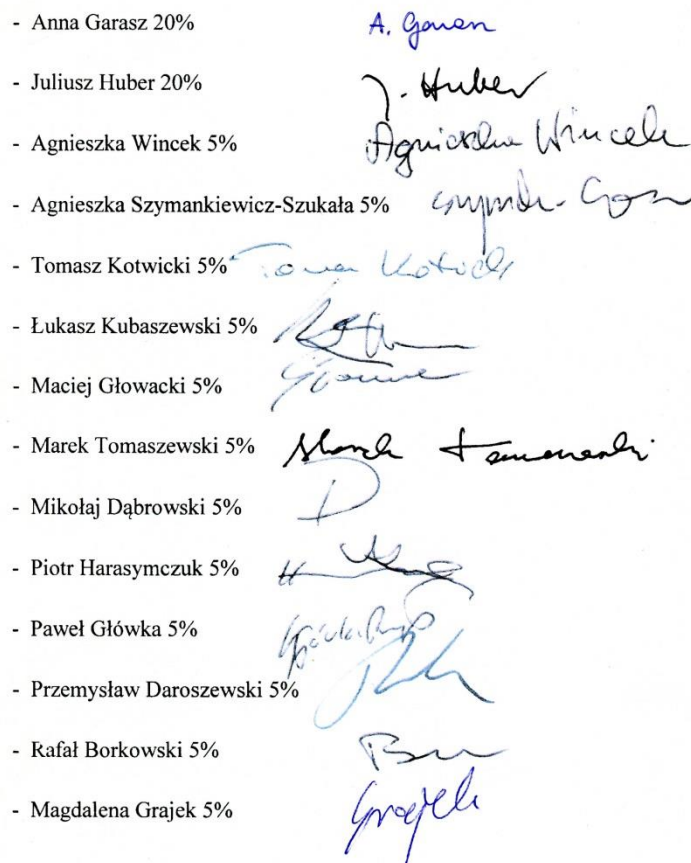 - Anna Garasz 20% A. Garasz
- Juliusz Huber 20% J. Huber
- Agnieszka Wincek 5% Agnieszka Wincek
- Agnieszka Szymankiewicz-Szukała 5%
- Tomasz Kotwicki 5% Tomasz Kotwicki
- Łukasz Kubaszewski 5%
- Maciej Głowacki 5%
- Marek Tomaszewski 5% Marek Tomaszewski
- Mikołaj Dąbrowski 5% D
- Piotr Harasymczuk 5%
- Paweł Główka 5%
- Przemysław Daroszewski 5%
- Rafał Borkowski 5%
- Magdalena Grajek 5% Grajek